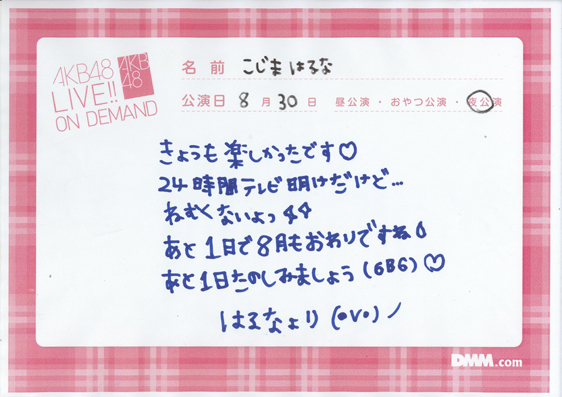 AKB48
LIVE!!
ON DEMAND
AKB
48
名前 こじまはるな
公演日 8月30日 昼公演・おやつ公演・夜公演
きょうも楽しかったです♡
24時間テレビ明けだけど…
ねむくないよっ
あと1日で8月もおわりですね
あと1日たのしみましょう(6B6)♡
はるなより(•v•)ノ
DMM.com